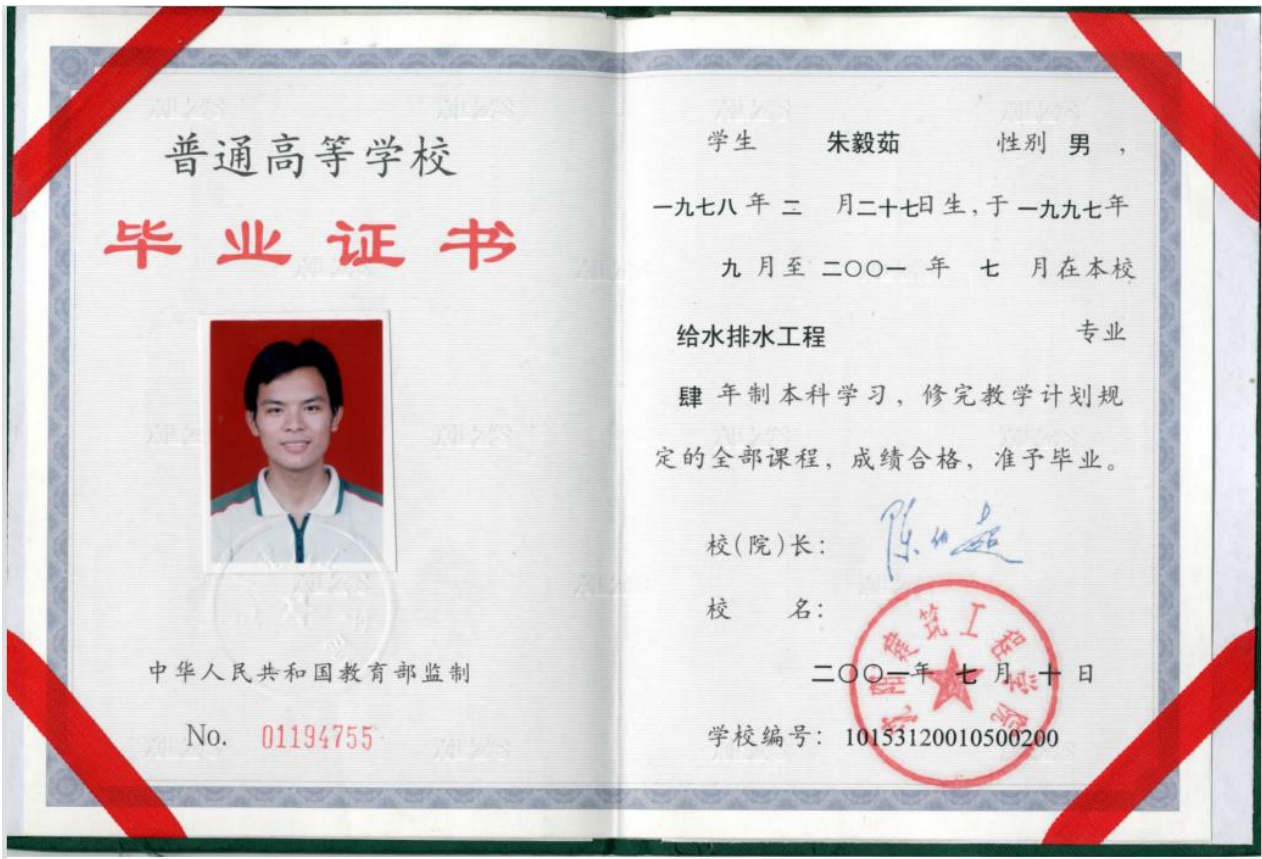 普通高等学校
毕业证书
中华人民共和国教育部监制
No. 01194755
学生 朱毅茹 性别 男,
一九七八年 二 月二十七日生,于一九九七年
九 月至 二〇〇一 年 七 月在本校
给水排水工程 专业
肆 年制本科学习, 修完教学计划规
定的全部课程, 成绩合格, 准予毕业。
校(院)长:
校 名:
沈阳建筑工程学院
二〇〇一年 七 月 十 日
学校编号: 10153120010500200